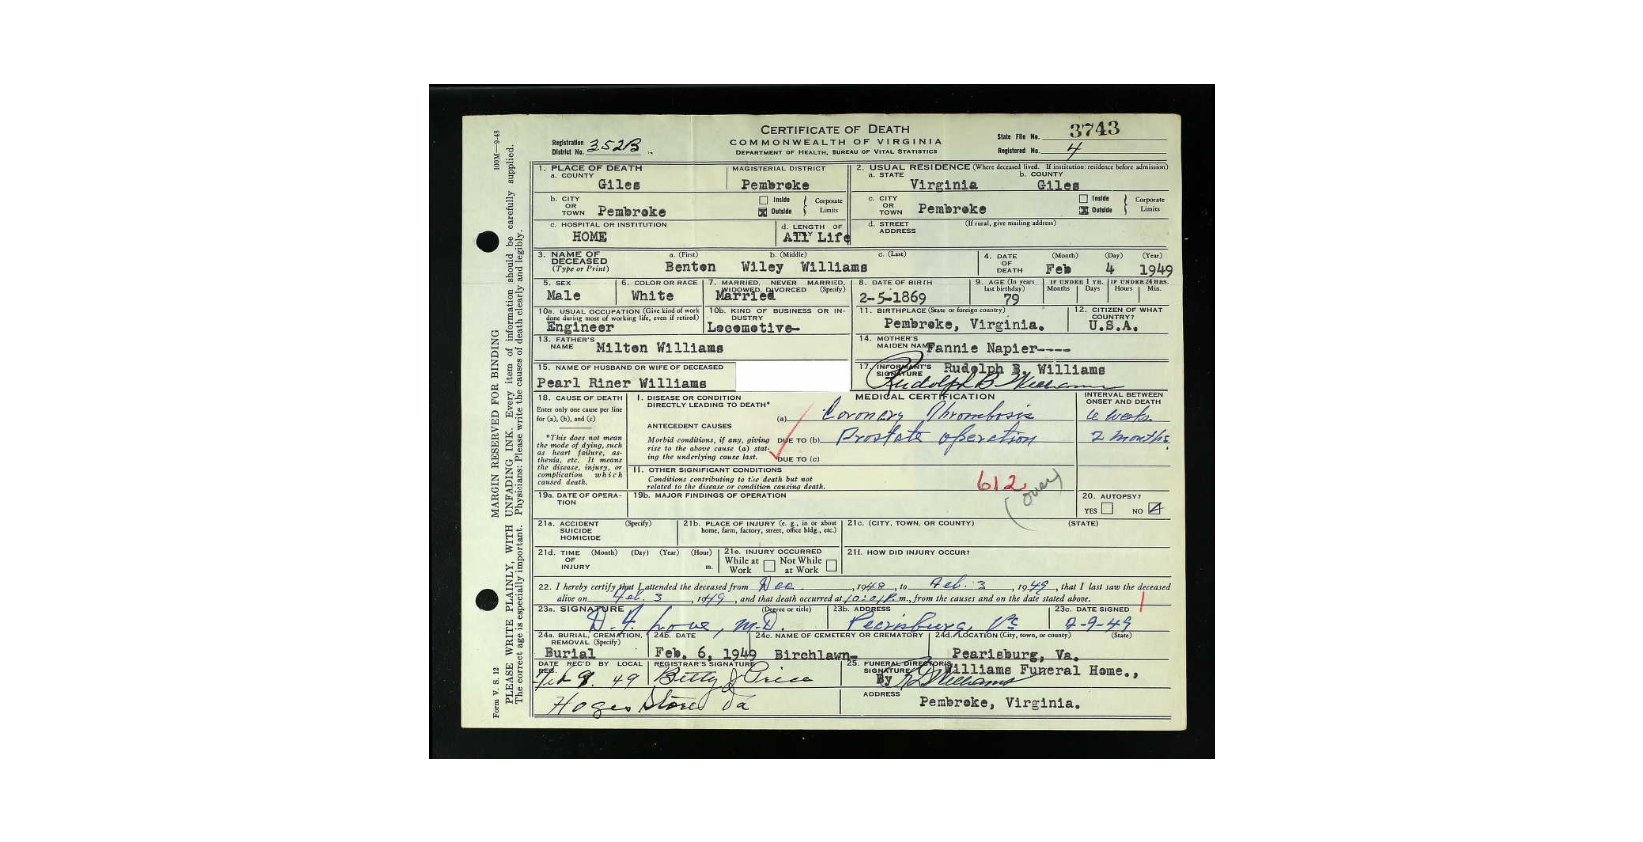 CERTIFICATE OF DEATH
COMMONWEALTH OF VIRGINIA
DEPARTMENT OF HEALTH, BUREAU OF VITAL STATISTICS
Registration District No. 352B
State File No. 3743
Registered No. 4
100M—9-48
MARGIN RESERVED FOR BINDING
PLEASE WRITE PLAINLY, WITH UNFADING INK. Every item of information should be carefully supplied.
The correct age is especially important. Physicians: Please write the causes of death clearly and legibly.
Form V. S. 12
1. PLACE OF DEATH
a. COUNTY Giles
MAGISTERIAL DISTRICT Pembroke
2. USUAL RESIDENCE (Where deceased lived. If institution: residence before admission)
a. STATE Virginia b. COUNTY Giles
b. CITY OR TOWN Pembroke Inside Outside Corporate Limits
c. CITY OR TOWN Pembroke Inside Outside Corporate Limits
c. HOSPITAL OR INSTITUTION HOME
d. LENGTH OF All Life
d. STREET ADDRESS (If rural, give mailing address)
3. NAME OF DECEASED (Type or Print)
a. (First) b. (Middle) c. (Last)
Benton Wiley Williams
4. DATE OF DEATH (Month) (Day) (Year)
Feb 4 1949
5. SEX Male
6. COLOR OR RACE White
7. MARRIED, NEVER MARRIED, WIDOWED, DIVORCED (Specify) Married
8. DATE OF BIRTH 2-5-1869
9. AGE (In years last birthday) 79
IF UNDER 1 YR. Months Days
IF UNDER 24 HRS. Hours Min.
10a. USUAL OCCUPATION (Give kind of work done during most of working life, even if retired) Engineer
10b. KIND OF BUSINESS OR INDUSTRY Locomotive-
11. BIRTHPLACE (State or foreign country) Pembroke, Virginia.
12. CITIZEN OF WHAT COUNTRY? U.S.A.
13. FATHER'S NAME Milton Williams
14. MOTHER'S MAIDEN NAME Fannie Napier----
15. NAME OF HUSBAND OR WIFE OF DECEASED
Pearl Riner Williams
17. INFORMANT'S SIGNATURE Rudolph B. Williams
Rudolph B Williams
18. CAUSE OF DEATH
Enter only one cause per line for (a), (b), and (c)
*This does not mean the mode of dying, such as heart failure, asthenia, etc. It means the disease, injury, or complication which caused death.
MEDICAL CERTIFICATION
INTERVAL BETWEEN ONSET AND DEATH
I. DISEASE OR CONDITION DIRECTLY LEADING TO DEATH*
(a) Coronary Thrombosis 6 weeks
ANTECEDENT CAUSES
Morbid conditions, if any, giving rise to the above cause (a) stating the underlying cause last.
DUE TO (b) Prostate operation 2 months
DUE TO (c)
II. OTHER SIGNIFICANT CONDITIONS
Conditions contributing to the death but not related to the disease or condition causing death.
612
(over)
19a. DATE OF OPERATION
19b. MAJOR FINDINGS OF OPERATION
20. AUTOPSY?
YES NO
21a. ACCIDENT SUICIDE HOMICIDE (Specify)
21b. PLACE OF INJURY (e. g., in or about home, farm, factory, street, office bldg., etc.)
21c. (CITY, TOWN, OR COUNTY) (STATE)
21d. TIME OF INJURY (Month) (Day) (Year) (Hour) m.
21e. INJURY OCCURRED
While at Work Not While at Work
21f. HOW DID INJURY OCCUR?
22. I hereby certify that I attended the deceased from Dec, 1948, to Feb. 3, 1949, that I last saw the deceased
alive on Feb. 3, 1949, and that death occurred at m., from the causes and on the date stated above.
23a. SIGNATURE (Degree or title) M.D.
23b. ADDRESS Pearisburg, Va
23c. DATE SIGNED 2-9-49
24a. BURIAL, CREMATION, REMOVAL (Specify) Burial
24b. DATE Feb. 6, 1949
24c. NAME OF CEMETERY OR CREMATORY Birchlawn-
24d. LOCATION (City, town, or county) (State) Pearisburg, Va.
DATE REC'D BY LOCAL REG. Feb 9. 49
REGISTRAR'S SIGNATURE Betty J Price
Hoges Store Va
25. FUNERAL DIRECTOR'S SIGNATURE Williams Funeral Home.,
By
ADDRESS Pembroke, Virginia.